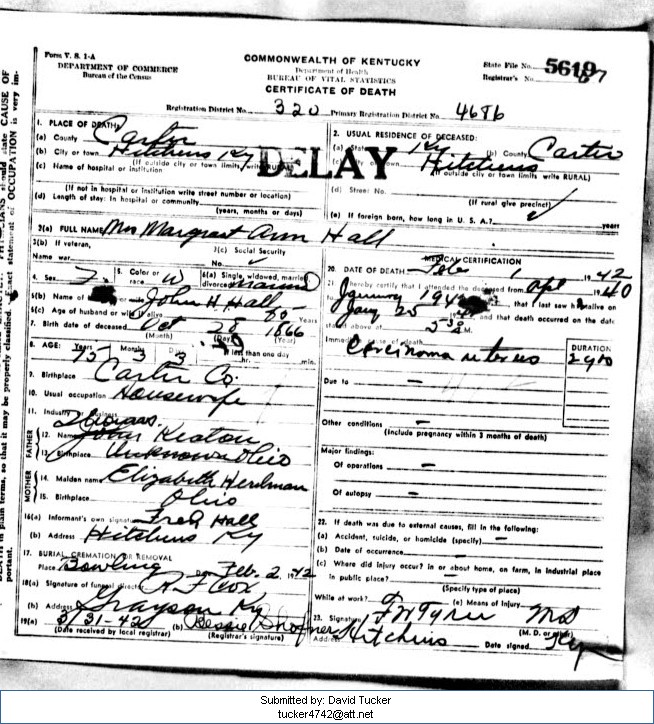 Form V. S. 1-A
DEPARTMENT OF COMMERCE
Bureau of the Census
COMMONWEALTH OF KENTUCKY
Department of Health
BUREAU OF VITAL STATISTICS
CERTIFICATE OF DEATH
State File No. 5619
Registrar's No. 67
Registration District No. 320 Primary Registration District No. 4686
DELAY
1. PLACE OF DEATH:
(a) County Carter
(b) City or town Hitchins Ky
(If outside city or town limits, write RURAL)
(c) Name of hospital or institution
(If not in hospital or institution write street number or location)
(d) Length of stay: In hospital or community
(years, months or days)
2. USUAL RESIDENCE OF DECEASED:
(a) State Ky (b) County Carter
(c) City or town Hitchins
(If outside city or town limits write RURAL)
(d) Street No.
(If rural give precinct)
(e) If foreign born, how long in U. S. A.? years
3(a) FULL NAME Mrs Margrast Ann Hall
3(b) If veteran, 3(c) Social Security
Name war No.
4. Sex F. 5. Color or race W 6(a) Single, widowed, married, divorced married
6(b) Name of husband or wife John H Hall
6(c) Age of husband or wife if alive 80 Years
7. Birth date of deceased Oct 28 1866
(Month) (Day) (Year)
8. AGE: Years Months Days If less than one day
75 3 3 hr. min.
9. Birthplace Carter Co
10. Usual occupation Housewife
11. Industry or business
FATHER
12. Name Keaton
13. Birthplace Unknown Ohio
MOTHER
14. Maiden name Elizabeth
15. Birthplace Ohio
16(a) Informant's own signature Fred Hall
(b) Address Hitchins Ky
17. BURIAL CREMATION OR REMOVAL
Place Bowling Date Feb. 2, 1942
18(a) Signature of funeral director R F Cox
(b) Address Grayson Ky
19(a) 3/31-42 (b) Bessie Shofner
(Date received by local registrar) (Registrar's signature)
MEDICAL CERTIFICATION
20. DATE OF DEATH Feb 1 1942
21. I hereby certify that I attended the deceased from Apl 1940
January 194 , that I last saw h alive on
Jany 25 and that death occurred on the date
stated above at 5 30 M.
Immediate cause of death DURATION
Carcinoma uterus 2 yrs
Due to –
Other conditions –
(Include pregnancy within 3 months of death)
Major findings:
Of operations –
Of autopsy –
22. If death was due to external causes, fill in the following:
(a) Accident, suicide, or homicide (specify) –
(b) Date of occurrence –
(c) Where did injury occur? in or about home, on farm, in industrial place
in public place? –
(Specify type of place)
While at work? (e) Means of injury
23. Signature F W Tyree MD
(M. D. or other)
Address Hitchins Date signed Ky
Submitted by: David Tucker
tucker4742@att.net